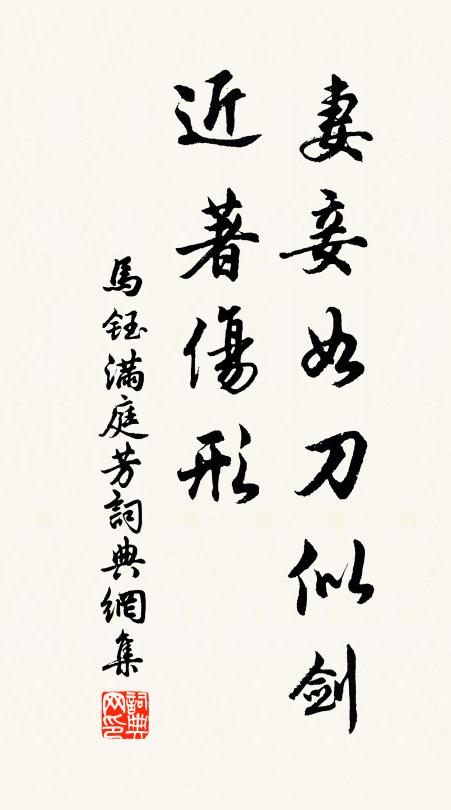 妻妾如刀似剑
近著傷形
馬鈺滿庭芳詞典網集
詞典網印